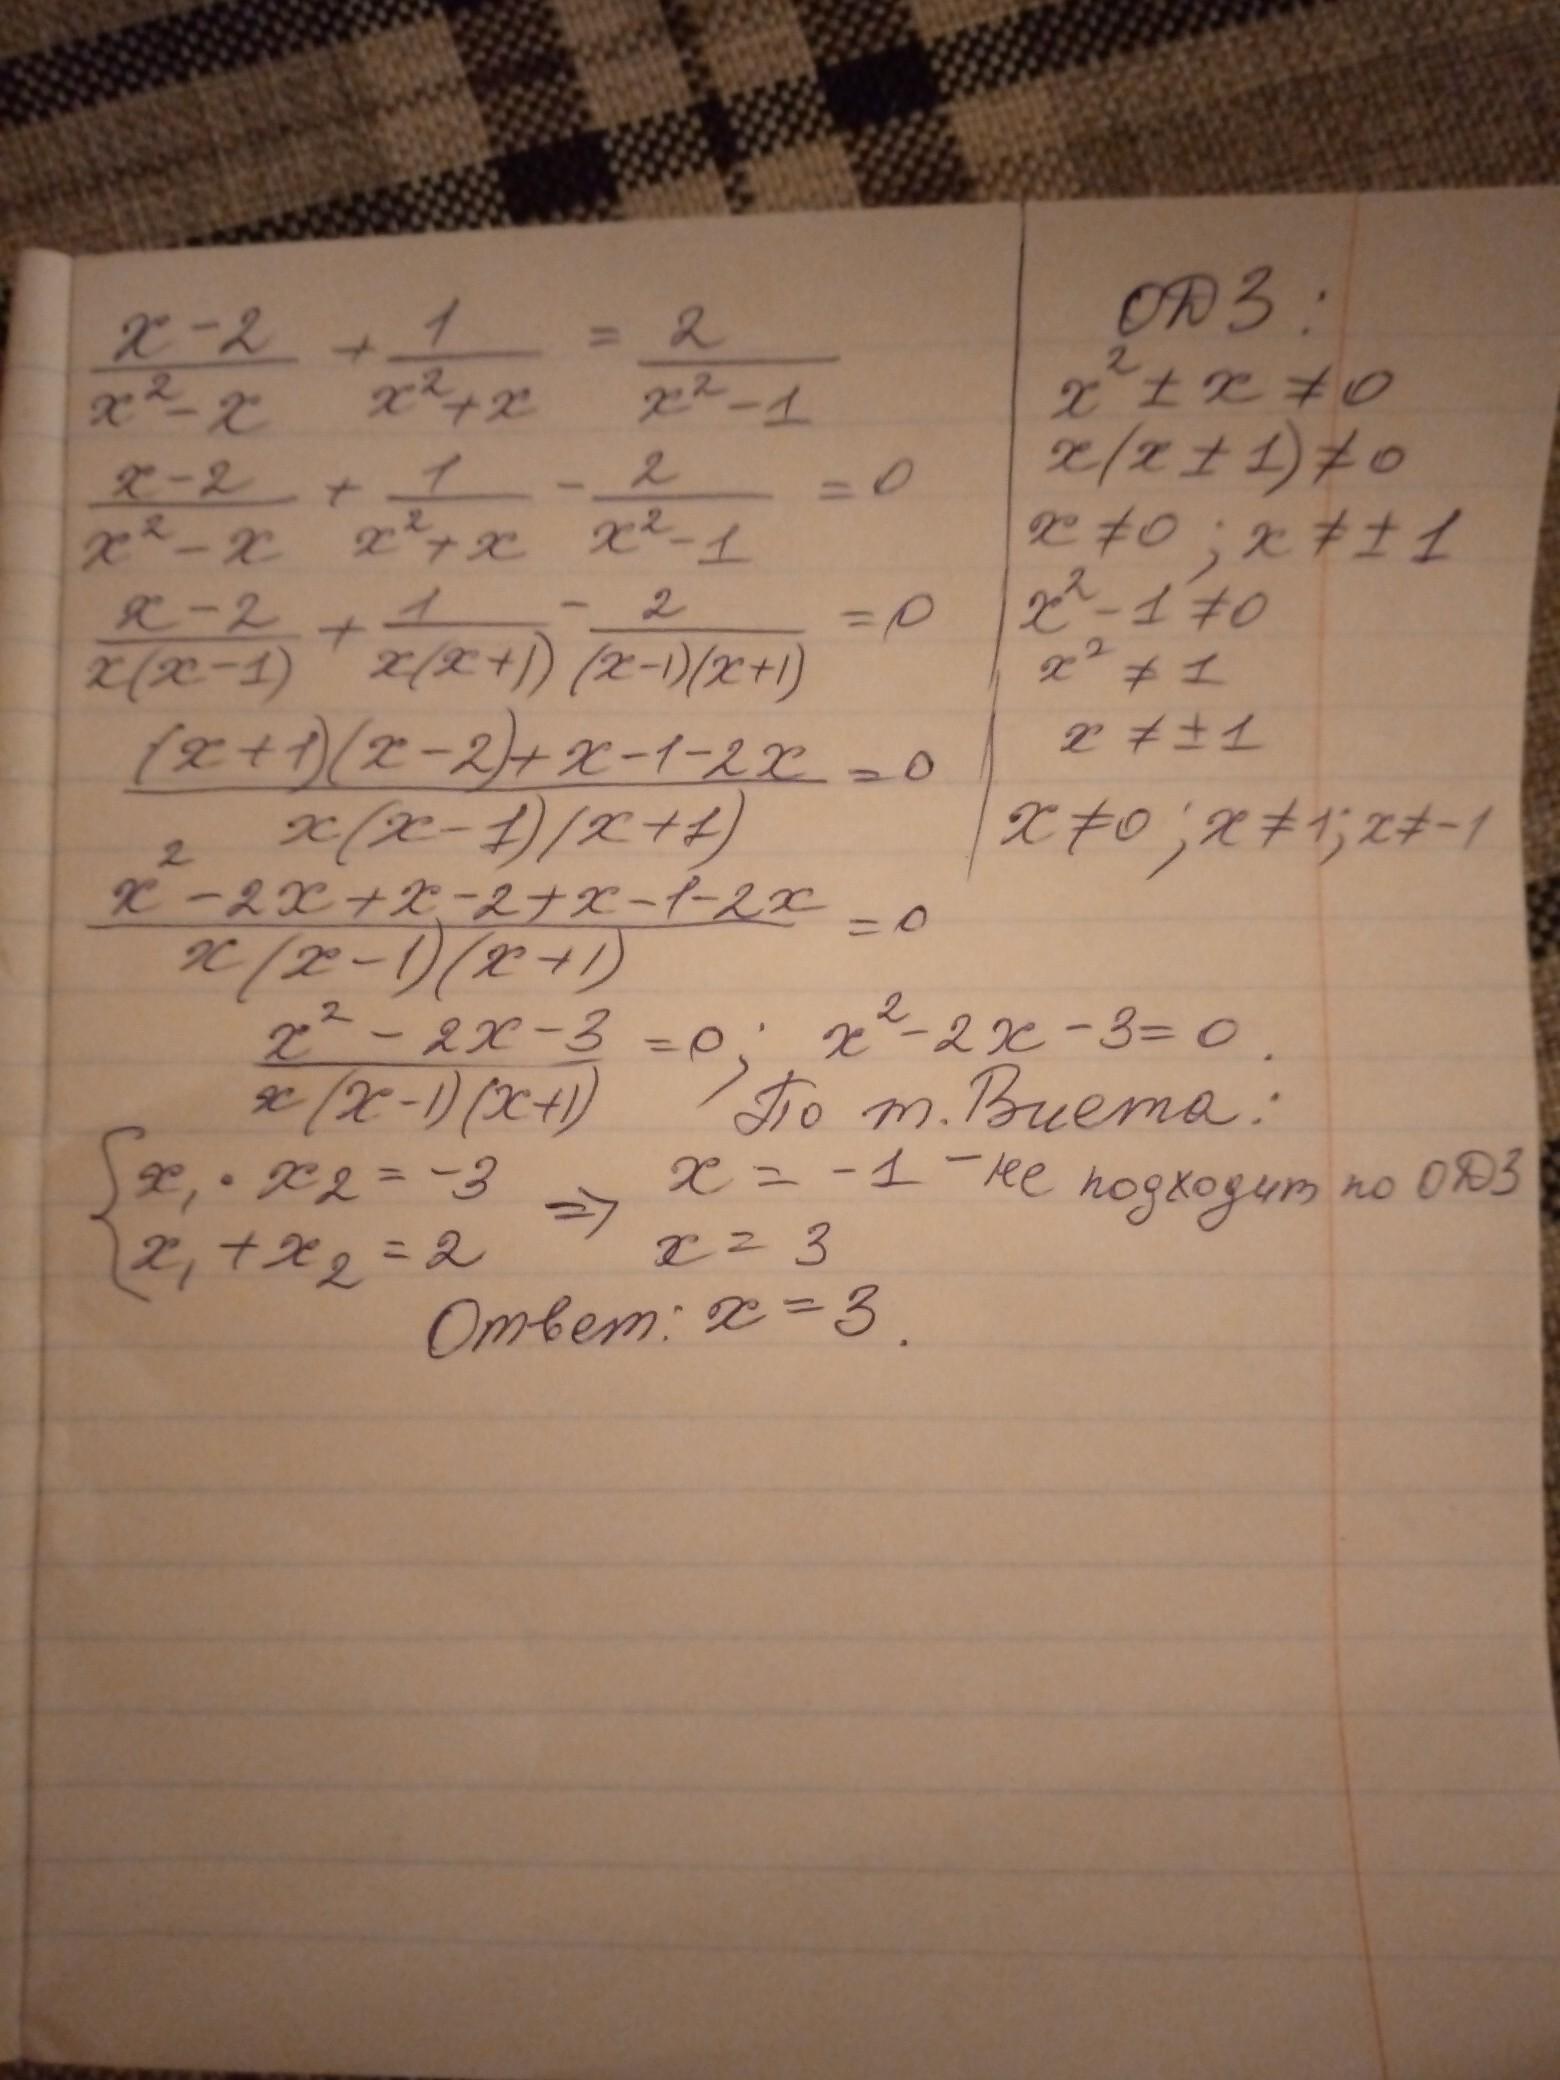 x-2/x²-x + 1/x²+x = 2/x²-1
x-2/x²-x + 1/x²+x - 2/x²-1 = 0
x-2/x(x-1) + 1/x(x+1) - 2/(x-1)(x+1) = 0
(x+1)(x-2)+x-1-2x/x(x-1)(x+1) = 0
x²-2x+x-2+x-1-2x/x(x-1)(x+1) = 0
x²-2x-3/x(x-1)(x+1) = 0; x²-2x-3=0.
По т. Виета:
{x₁·x₂=-3 ⇒ x=-1 - не подходит по ОДЗ
x₁+x₂=2 x=3
Ответ: x=3.
ОДЗ:
x²±x≠0
x(x±1)≠0
x≠0; x≠±1
x²-1≠0
x²≠1
x≠±1
x≠0; x≠1; x≠-1